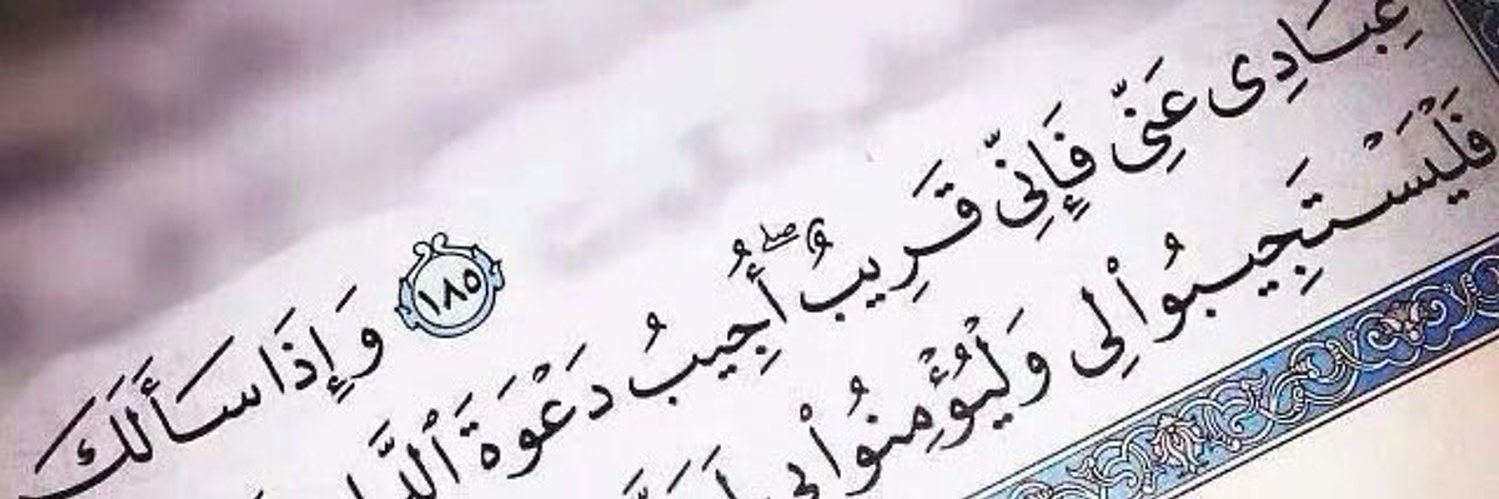 ١٨٥ وَإِذَا سَأَلَكَ
عِبَادِى عَنِّى فَإِنِّى قَرِيبٌ ۖ أُجِيبُ دَعْوَةَ
فَلْيَسْتَجِيبُوا۟ لِى وَلْيُؤْمِنُوا۟ بِى